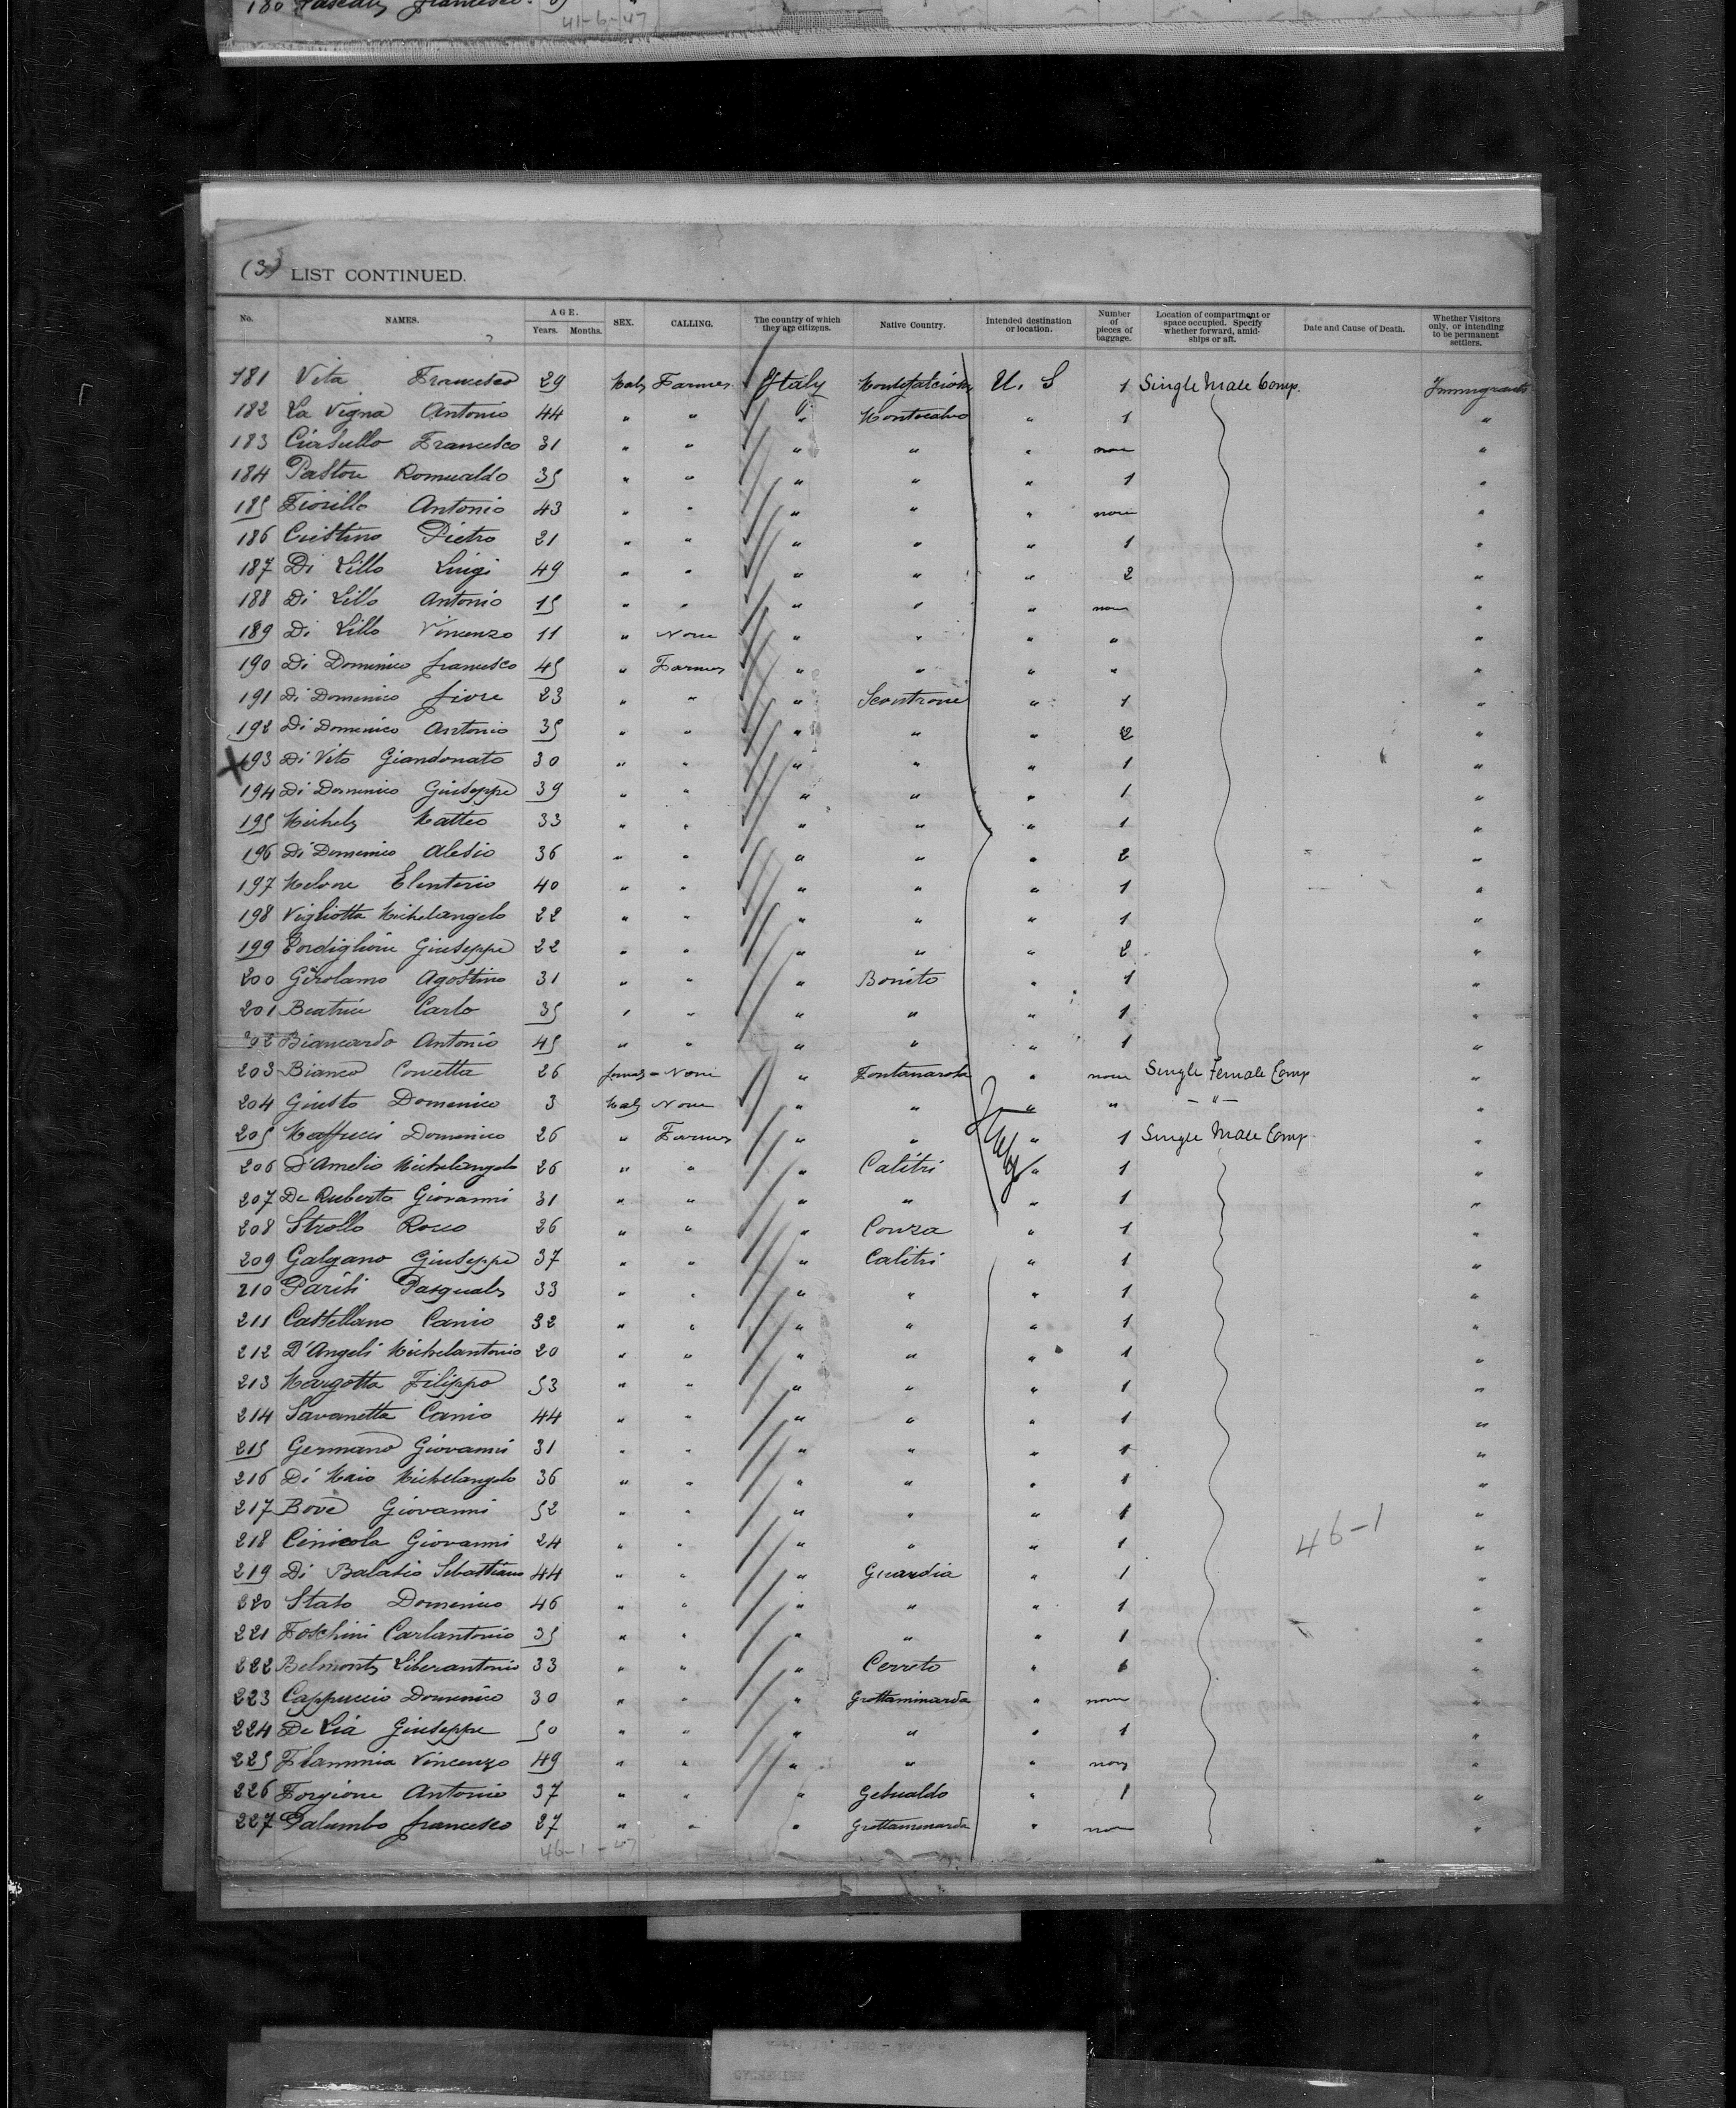 180 Pascale Francesco
41-6-47
(3) LIST CONTINUED.
No. NAMES. AGE. Years. Months. SEX. CALLING. The country of which they are citizens. Native Country. Intended destination or location. Number of pieces of baggage. Location of compartment or space occupied. Specify whether forward, amidships or aft. Date and Cause of Death. Whether Visitors only, or intending to be permanent settlers.
181 Vita Francesco 29 Male Farmer Italy Montefalcione U. S 1 Single Male Comp. Immigrants
182 La Vigna Antonio 44 " " " Montecalvo " 1 "
183 Ciasullo Francesco 31 " " " " " none "
184 Pastore Romualdo 35 " " " " " 1 "
185 Fiorillo Antonio 43 " " " " " none "
186 Cristino Pietro 21 " " " " " 1 "
187 Di Lillo Luigi 49 " " " " " 2 "
188 Di Lillo Antonio 15 " " " " " none "
189 Di Lillo Vincenzo 11 " None " " " " "
190 Di Domenico Francesco 45 " Farmer " " " " "
191 Di Domenico Fiore 23 " " " Scontrone " 1 "
192 Di Domenico Antonio 35 " " " " " 2 "
X 193 Di Vito Giandonato 30 " " " " " 1 "
194 Di Domenico Giuseppe 39 " " " " " 1 "
195 Michele Matteo 33 " " " " " 1 "
196 Di Domenico Alesio 36 " " " " " 2 "
197 Melone Elenterio 40 " " " " " 1 "
198 Vigliotta Michelangelo 22 " " " " " 1 "
199 Cordiglione Giuseppe 22 " " " " " 2 "
200 Girolamo Agostino 31 " " " Bonito " 1 "
201 Beatrice Carlo 35 " " " " " 1 "
202 Biancardo Antonio 45 " " " " " 1 "
203 Bianco Concetta 26 female None " Fontanarosa " none Single Female Comp "
204 Giusto Domenico 3 Male None " " " " - " - "
205 Maffucci Domenico 26 " Farmer " " " 1 Single Male Comp "
206 D'Amelio Michelangelo 26 " " " Calitri " 1 "
207 De Ruberto Giovanni 31 " " " " " 1 "
208 Strollo Rocco 26 " " " Conza " 1 "
209 Galgano Giuseppe 37 " " " Calitri " 1 "
210 Parisi Pasquale 33 " " " " " 1 "
211 Castellano Canio 32 " " " " " 1 "
212 D'Angeli Michelantonio 20 " " " " " 1 "
213 Margotta Filippo 53 " " " " " 1 "
214 Savanetta Canio 44 " " " " " 1 "
215 Germano Giovanni 31 " " " " " 1 "
216 Di Maio Michelangelo 36 " " " " " 1 "
217 Bove Giovanni 52 " " " " " 1 "
218 Cinicola Giovanni 24 " " " " " 1 46-1 "
219 Di Balasio Sebastiano 44 " " " Guardia " 1 "
220 Stato Domenico 46 " " " " " 1 "
221 Foschini Carlantonio 35 " " " " " 1 "
222 Belmonte Liberantonio 33 " " " Cerreto " "
223 Cappuccio Domenico 30 " " " Grottaminarda " none "
224 De Lia Giuseppe 50 " " " " " 1 "
225 Flammia Vincenzo 49 " " " " " none "
226 Forgione Antonio 37 " " " Gesualdo " 1 "
227 Palumbo Francesco 27 " " " Grottaminarda " none "
46-1-47